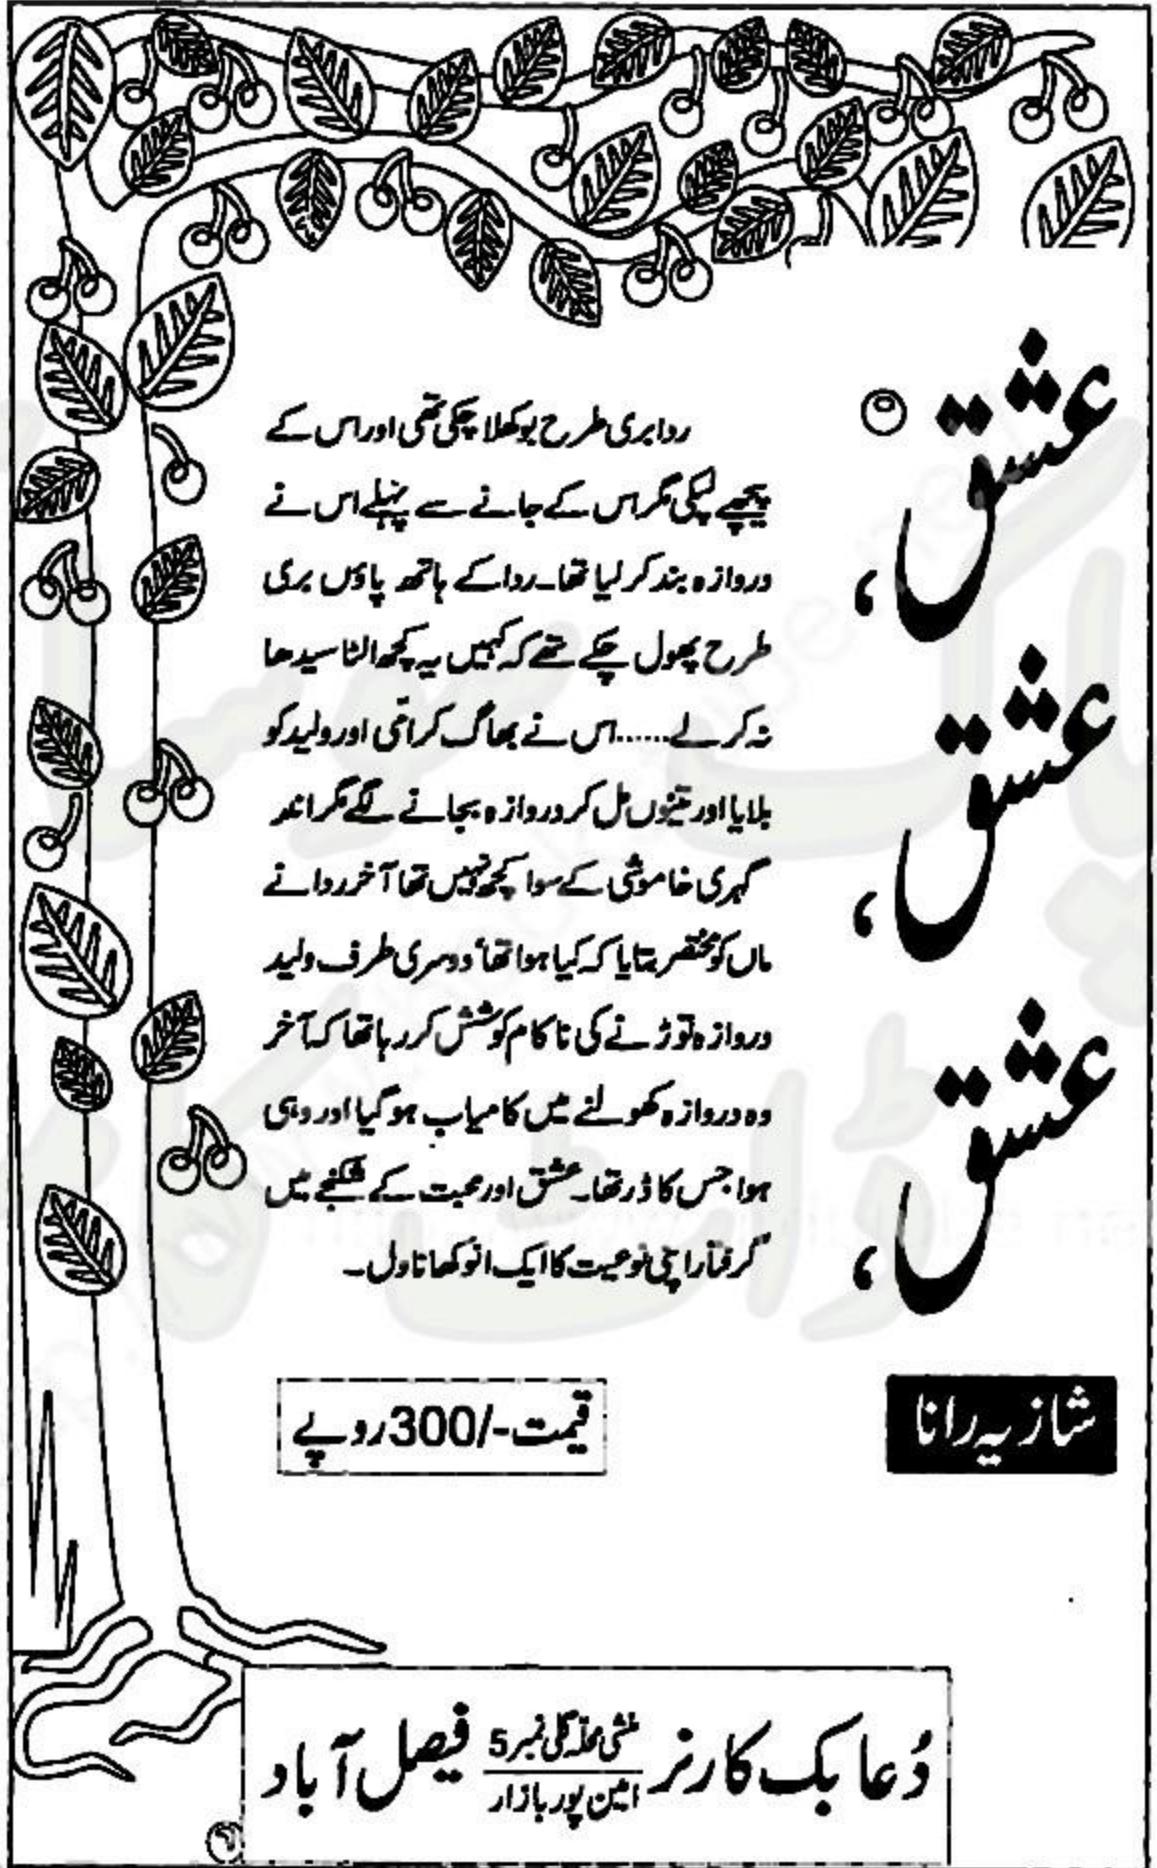 عشق،
عشق،
عشق،
ردا بری طرح بوکھلا چکی تھی اور اس کے
پیچھے لپکی مگر اس کے جانے سے پہلے اس نے
دروازہ بند کر لیا تھا۔ ردا کے ہاتھ پاؤں بری
طرح پھول چکے تھے کہ کہیں یہ کچھ الٹا سیدھا
نہ کر لے......اس نے بھاگ کر امّی اور ولید کو
بلایا اور تینوں مل کر دروازہ بجانے لگے مگر اندر
گہری خاموشی کے سوا کچھ نہیں تھا آخر ردا نے
ماں کو مختصر بتایا کہ کیا ہوا تھا‘ دوسری طرف ولید
دروازہ توڑنے کی ناکام کوشش کر رہا تھا کہ آخر
وہ دروازہ کھولنے میں کامیاب ہو گیا اور وہی
ہوا جس کا ڈر تھا۔ عشق اور محبت کے شکنجے میں
گرفتار اپنی نوعیت کا ایک انوکھا ناول۔
شازیہ رانا
قیمت-/300روپے
دُعا بک کارنر منشی محلہ گلی نمبر 5 امین پور بازار فیصل آباد